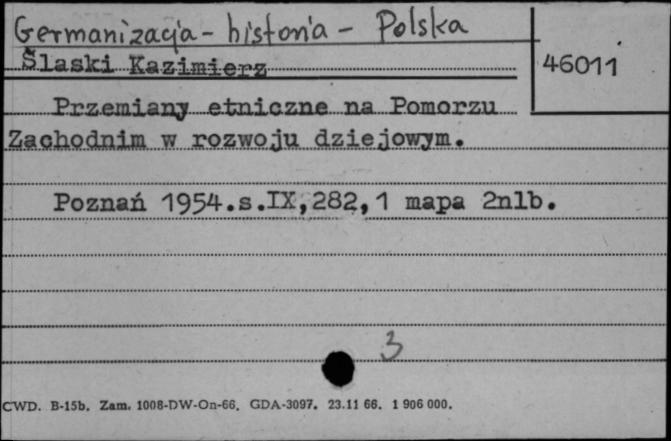 Germanizacja - historia - Polska
Ślaski Kazimierz
46011
Przemiany etniczne na Pomorzu
Zachodnim w rozwoju dziejowym.
Poznań 1954.s.IX,282,1 mapa 2nlb.
3
CWD. B-15b. Zam. 1008-DW-On-66. GDA-3097. 23.11 66. 1 906 000.